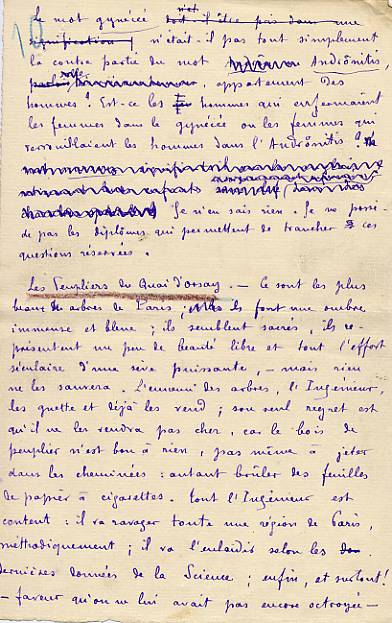 Le mot gynécée n'est
, n'était-il pas tout simplement
la contre partie du mot Andrônitis,
appartement des
hommes ? Est-ce les hommes qui enfermaient
les femmes dans le gynécée ou les femmes qui
verrouillaient les hommes dans l'Andrônitis ?
Je n'en sais rien. Je ne possè-
de pas les diplômes qui permettent de trancher ces
questions réservées.
Les Peupliers du Quai d'Orsay. — Ce sont les plus
beaux arbres de Paris ; ils font une ombre
immense et bleue ; ils semblent sacrés, ils re-
présentent un peu de beauté libre et tout l'effort
séculaire d'une sève puissante, — mais rien
ne les sauvera. L'ennemi des arbres, l'Ingénieur,
les guette et déjà les vend ; son seul regret est
qu'il ne les vendra pas cher, car le bois de
peuplier n'est bon à rien, pas même à jeter
dans les cheminées : autant brûler des feuilles
de papier à cigarettes. Tout l'Ingénieur est
content : il va ravager toute une région de Paris,
méthodiquement ; il va l'enlaidir selon les
dernières données de la Science ; enfin, et surtout !
— faveur qu'on ne lui avait pas encore octroyée —